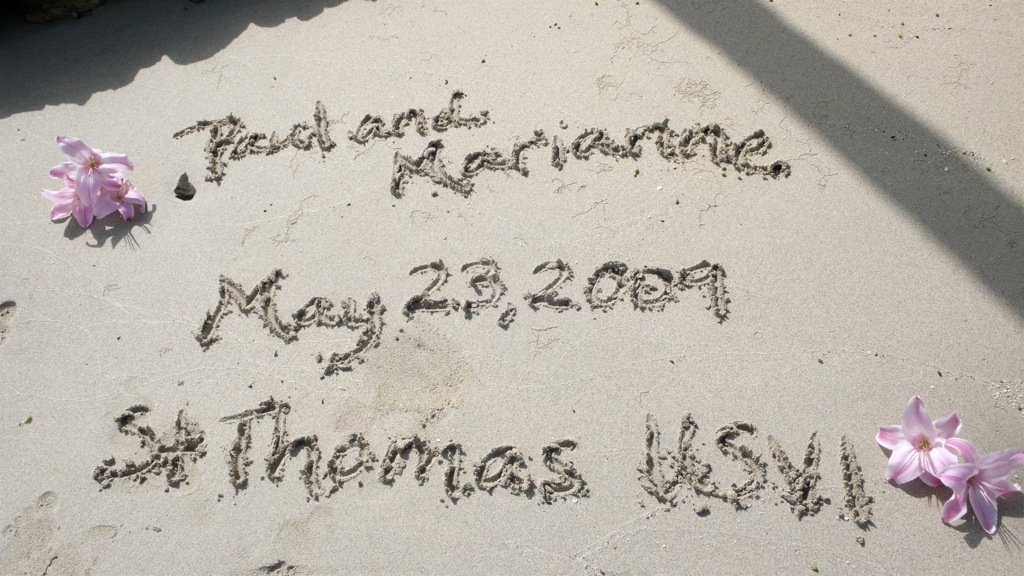 Paul and
Marianne
May 23, 2009
St Thomas USVI